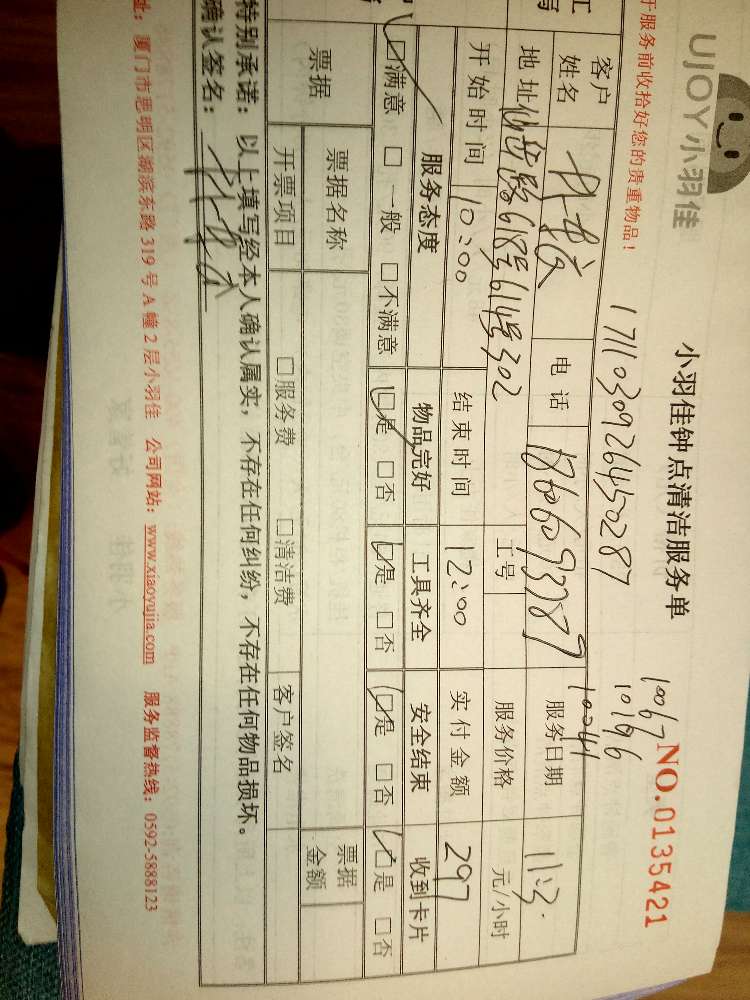 UJOY小羽佳
小羽佳钟点清洁服务单
NO.0135421
10067
10196
于服务前收拾好您的贵重物品！
1711030926450287
10041
客户姓名 电话 服务日期 11.3.
地址 618号614号302 工号 服务价格 元/小时
开始时间 10:00 结束时间 12:00 实付金额 297
服务态度 物品完好 工具齐全 安全结束 收到卡片
☑满意 □一般 □不满意 ☑是 □否 ☑是 □否 ☑是 □否 ☑是 □否
票据 票据名称 票据金额
开票项目 □服务费 □清洁费 客户签名
特别承诺：以上填写经本人确认属实，不存在任何纠纷，不存在任何物品损坏。
确认签名：
址：厦门市思明区湖滨东路319号A幢2层小羽佳 公司网站：www.xiaoyujia.com 服务监督热线：0592-5888123